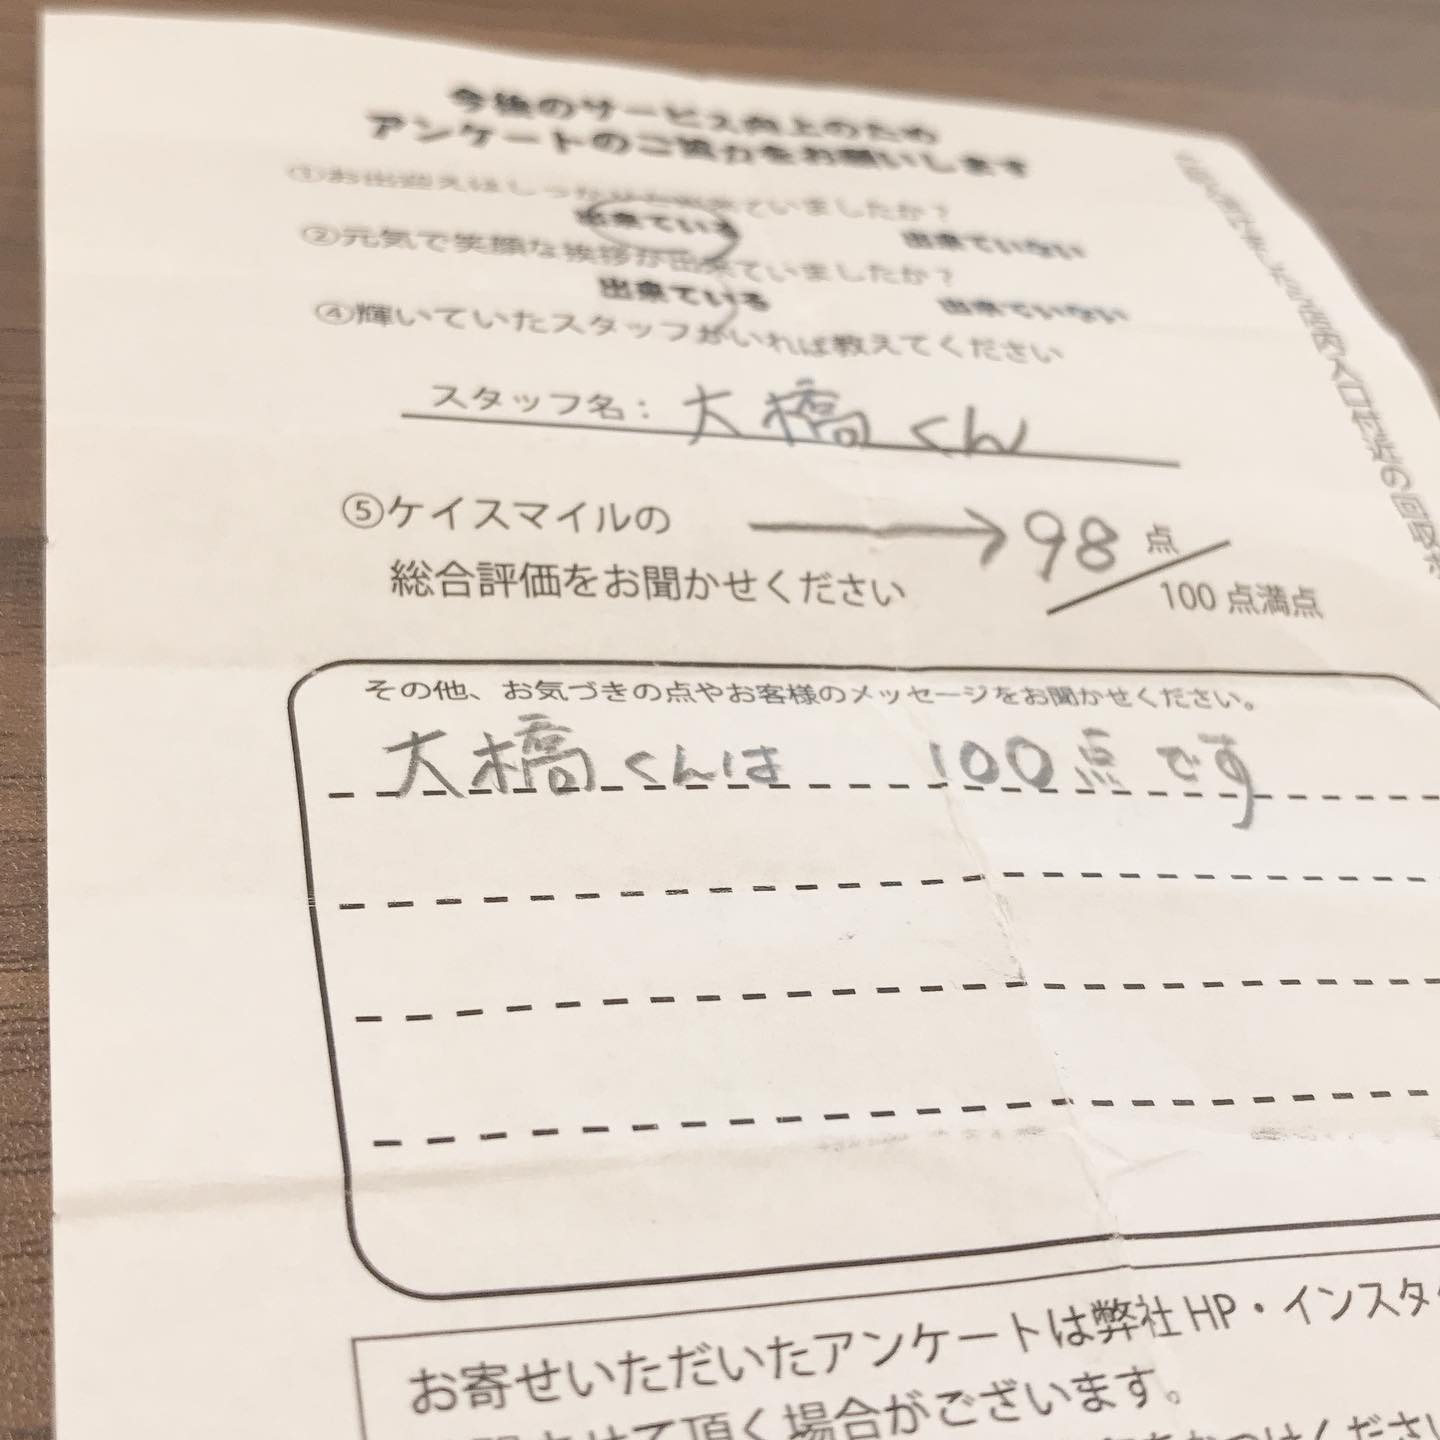 今後のサービス向上のため
アンケートのご協力をお願いします
①お出迎えはしっかりと出来ていましたか？
出来ている 出来ていない
②元気で笑顔な挨拶が出来ていましたか？
出来ている 出来ていない
④輝いていたスタッフがいれば教えてください
スタッフ名： 大橋くん
⑤ケイスマイルの
総合評価をお聞かせください
→ 98 点 / 100 点満点
その他、お気づきの点やお客様のメッセージをお聞かせください。
大橋くんは 100点です
お寄せいただいたアンケートは弊社 HP・インスタ
させて頂く場合がございます。
店内入口付近の回収